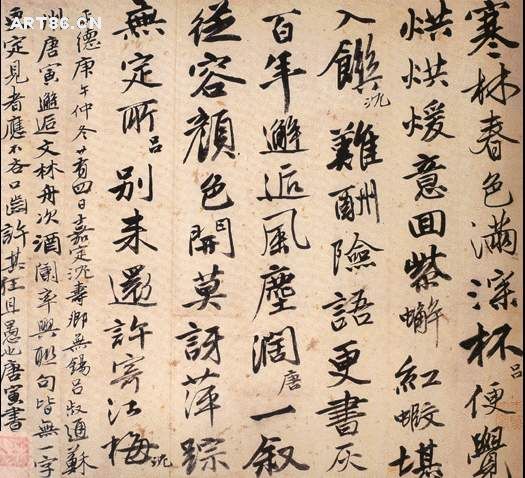 ART86.CN
寒林春色滿深杯呂便覺
烘烘煖意回紫蠏紅蝦堪
入饌沈難酬險語更書灰
百年邂逅風塵濶唐一叙
從容顏色開莫訝萍踪
無定所呂别来還許寄江梅沈
正德庚午仲冬廿有四日嘉定沈壽卿無錫呂叔通蘇
州唐寅邂逅文林舟次酒闌率興聯句皆無一字
更定見者應不吝口齒許其狂且愚也唐寅書